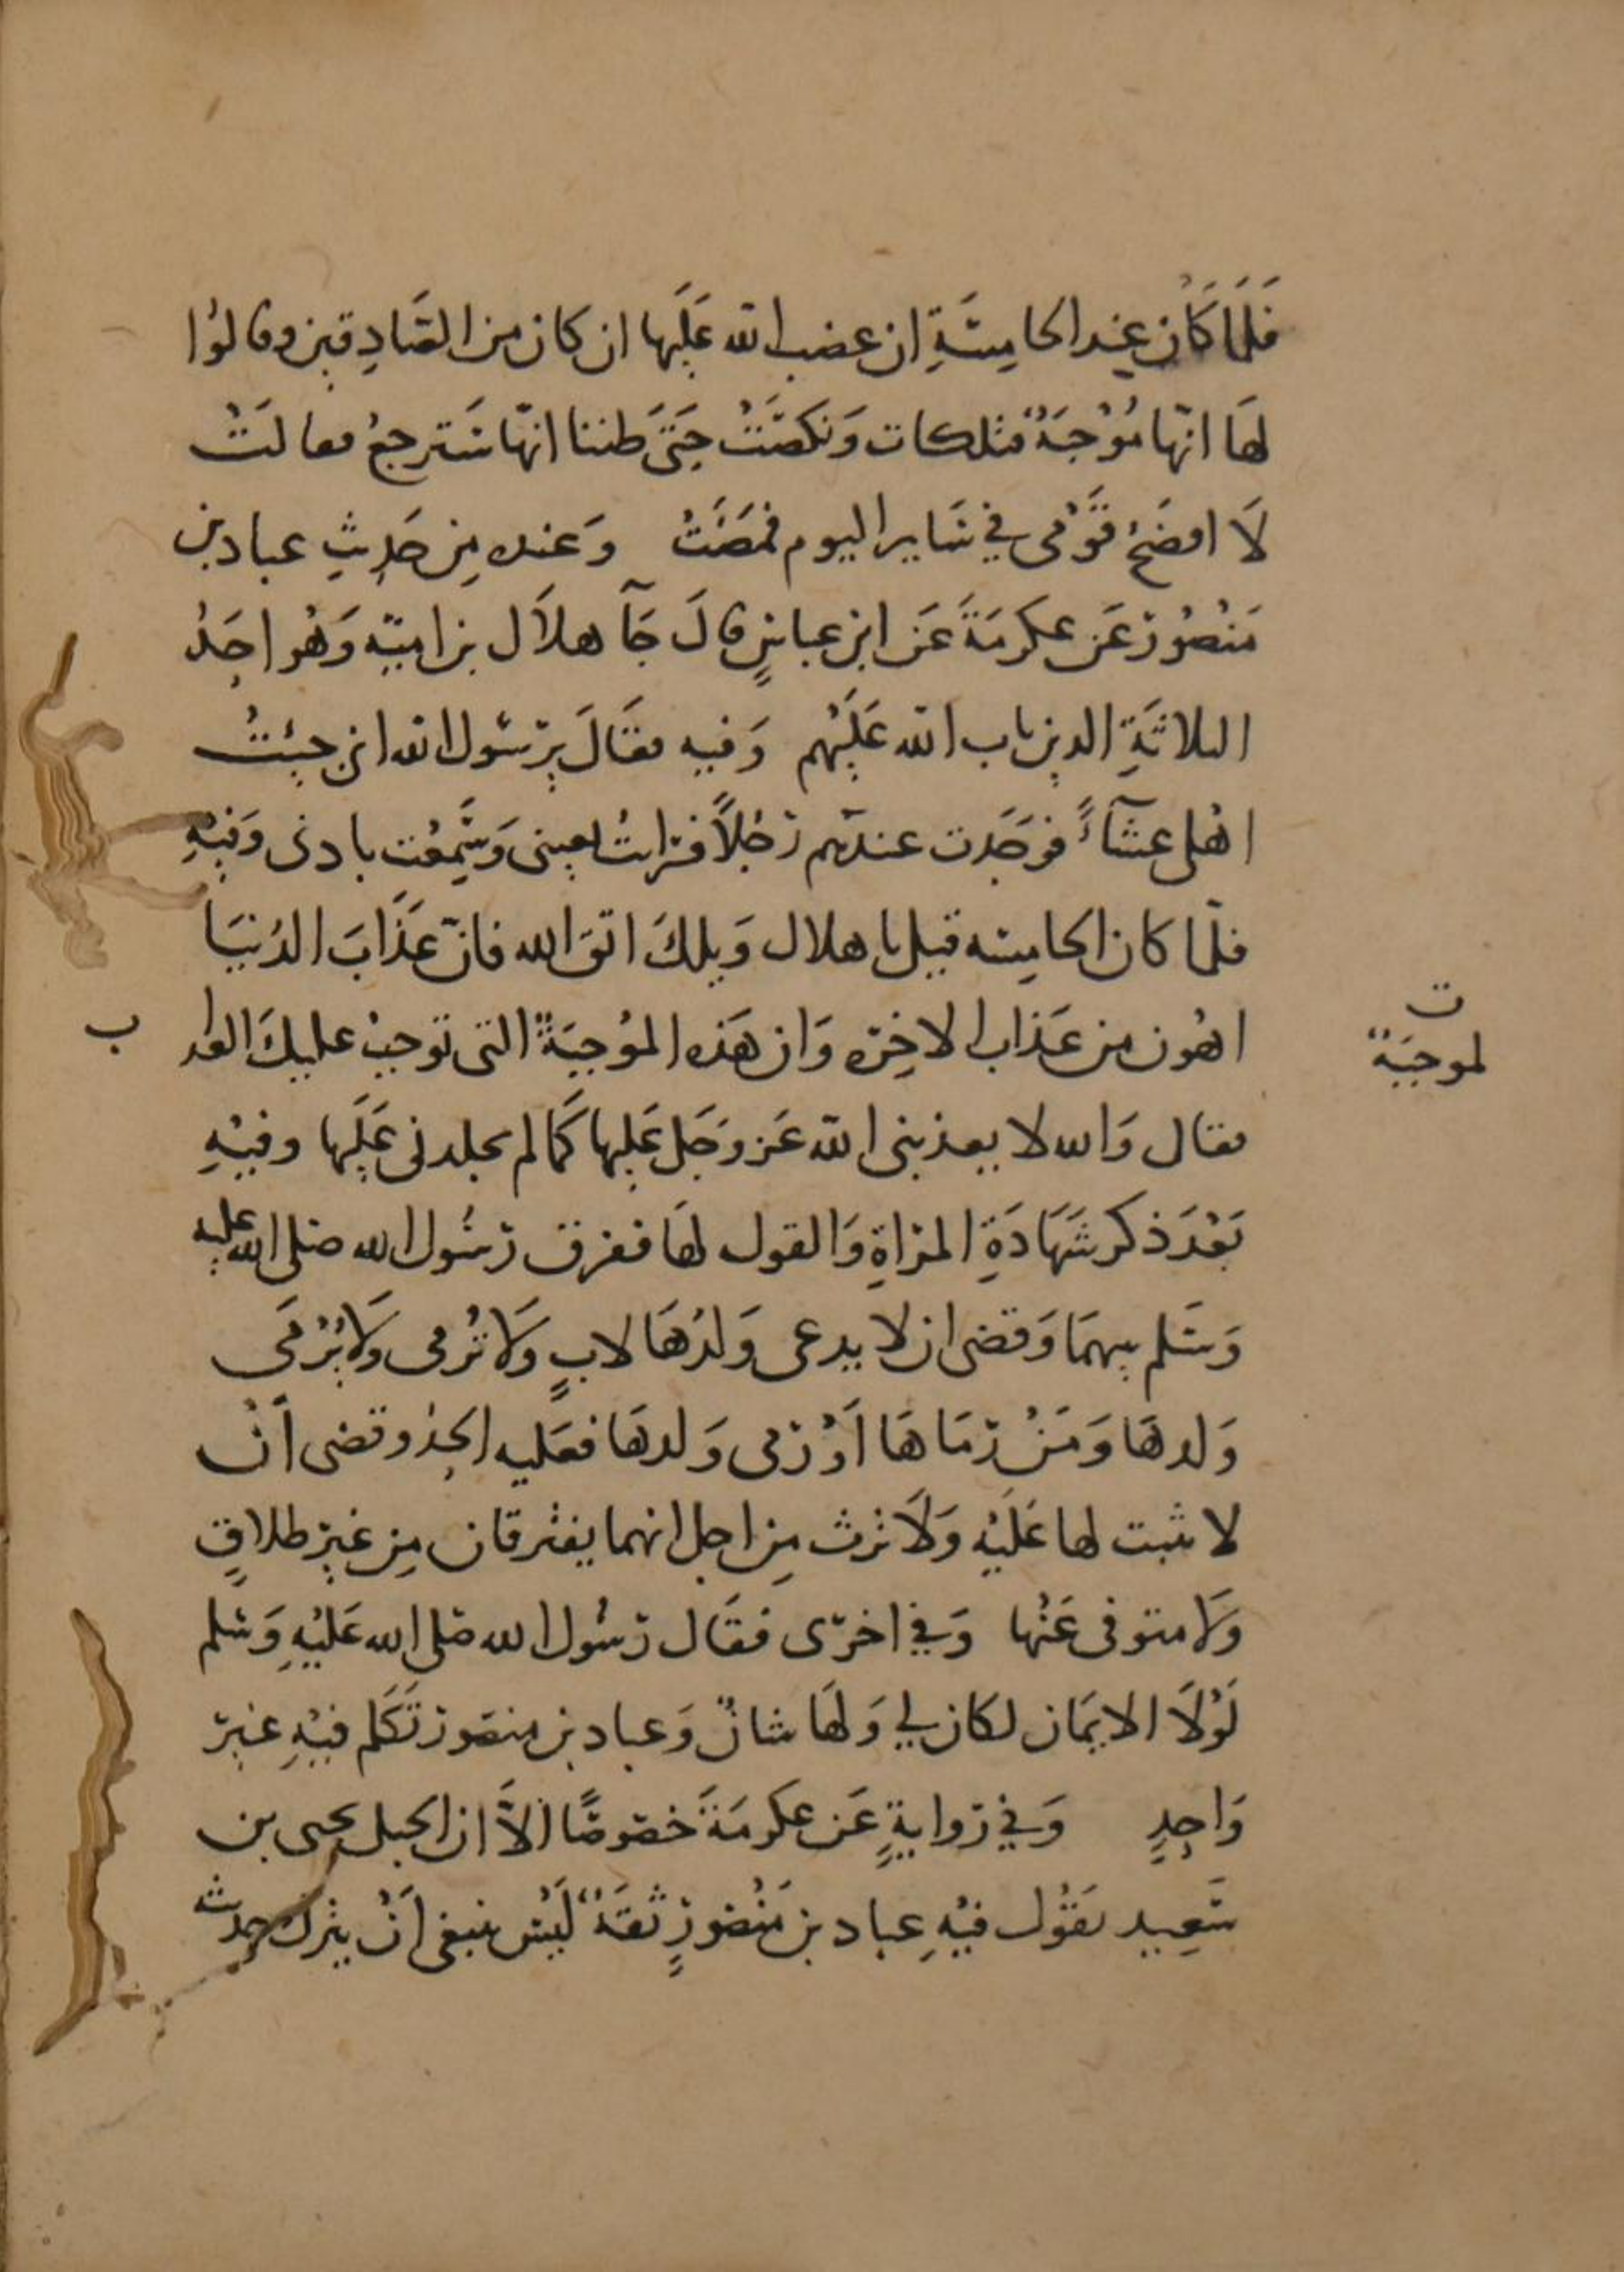 فَلَمَّا كَانَ عِنْدَ الخامِسَةِ ان غضب الله عَلَيها ان كان من الصَّادِقين وقالوُا
لهَا انّها مُوْجِبَةٌ فتلكات وَنكصَتْ حَتّىَ ظننا انّها سَترجعُ فقالَتْ
لَا افضَحُ قَوْمى في سَاير اليوم فمضَتْ وَعنده مِن حَدِيثِ عباد بن
مَنْصُور عَن عكرمَةَ عَن ابن عباسٍ قالَ جَآ هلاَل بن اميّه وَهُو احَدُ
الثلاثَةِ الذين تاب الله عَلَيْهم وَفيه فقَالَ يرَسُول الله انى جِئتُ
اهْلى عشَآءً فوجَدت عندَهم رَجُلاً فرَايتُ بعينى وَسَمعْت باذنى وَفيْهِ
فلّما كان الخامِسَه قيل يا هلال وَيلكَ اتقَ الله فانّ عَذَابَ الدُنيَا
اهْون من عَذاب الاخِرَه وَان هَذه المُوْجِبَةٌ التى توْجبْ عليكَ العذاب
لموجبَةٌ
فقال وَالله لا يعذبنى الله عَز وَجَل عَليها كَما لم يجلدنى عَلَيها وفيْهِ
بَعْدَ ذكر شَهَادَةِ المرَاةِ وَالقول لهَا ففرق رَسُول الله صَلى الله عليه
وَسَلم بينهمَا وَقضى ان لا يدعى وَلدُهَا لابٍ وَلَا تُرْمى وَلَا يُرْمَى
وَلدهَا وَمَنْ رَمَاهَا اَوْ رَمى وَلدهَا فعَليه الحدُ وقضى اَنْ
لا ثبت لها عَلَيْه وَلَا ترث مِن اجل انهما يفترقان مِن غيْر طلاقٍ
وَلَا متوفى عَنْها وَفي اخرَى فقَال رَسُول الله صَلى الله عَليْهِ وَسَلم
لَوْلَا الايمَان لكان لي وَلهَا شانٌ وَعباد بن منصَور تَكَلم فيْهِ غيْر
وَاحِدٍ وَفي رَوايةٍ عَن عكرمَةَ خصَوصًا الاَّ ان الجبل يحيى بن
سَعِيد يقُوْل فيْهِ عباد بن مَنْصَورٍ ثقَةٌ لَيْسَ ينبغى اَنْ يترك حديثه